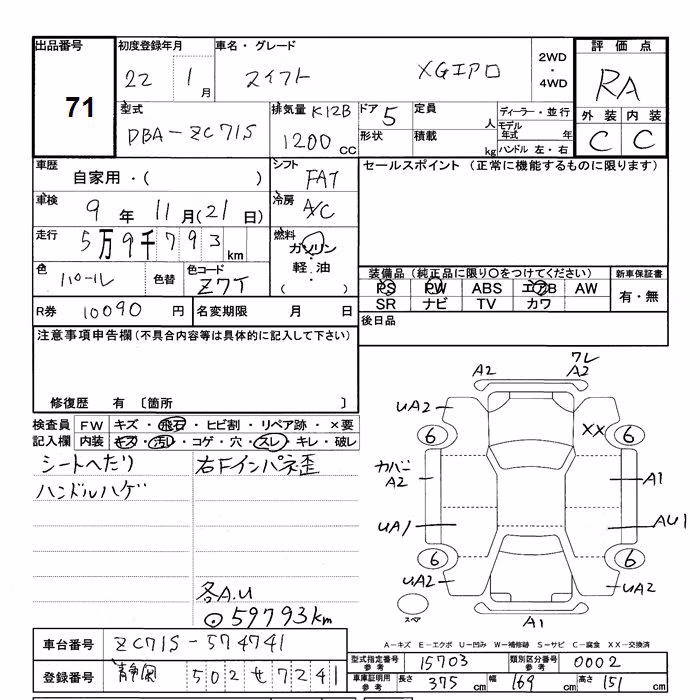 出品番号 初度登録年月 車名・グレード 2WD・4WD 評価点
71 22 1月 スイフト XGIアロ RA
外装 内装
C C
型式 排気量 K12B ドア 5 定員 人 ディーラー・並行
DBA-ZC71S 1200 cc 形状 積載 kg モデル年式 年
ハンドル 左・右
車歴 シフト セールスポイント (正常に機能するものに限ります)
自家用・( ) FAT
車検 9年 11月(21日) 冷房 A/C
走行 5万9千793km 燃料 ガソリン
軽・油
( )
色 パール 色替 色コード Z7T
装備品 (純正品に限り○をつけてください) 新車保証書
PS PW ABS エアB AW 有・無
SR ナビ TV カワ
R券 10090 円 名変期限 月 日 後日品
注意事項申告欄(不具合内容等は具体的に記入して下さい)
修復歴 有 〔箇所 〕
検査員 FW キズ・飛石・ヒビ割・リペア跡・×要
記入欄 内装 キズ・汚レ・コゲ・穴・スレ・キレ・破レ
シートへたり 右Fインパネ歪
ハンドルハゲ
各A.U
59793km
A2 ワレ A2
UA2 XX
6 6
カバーA2 A1
UA1 AU1
6 6
UA2 UA2
スペア A1
A-キズ E-エクボ U-凹み W-補修跡 S-サビ C-腐食 XX-交換済
車台番号 ZC71S-574741
型式指定番号 参考 15703 類別区分番号 参考 0002
登録番号 静岡 502 せ 7241
車庫証明用 参考 長さ 375 cm 幅 169 cm 高さ 151 cm